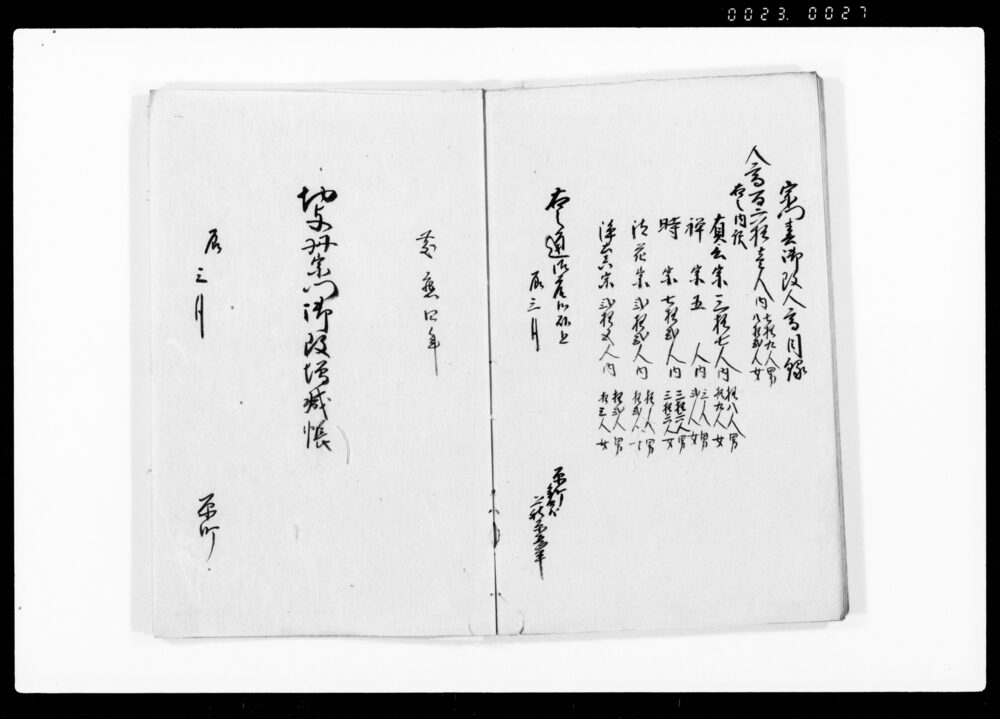 0023. 0027
宗門春御改人高目録
人高百六拾壱人内
七拾九人男
八拾弐人女
右之内訳
真言宗三拾七人内
拾八人男
拾九人女
禅宗五人内
三人男
弐人女
時宗七拾弐人内
三拾六人男
三拾六人女
法花宗弐拾弐人内
拾弐人
浄土真宗弐拾五人内
拾弐人男
拾三人女
右之通御座候以上
辰三月
原町
慶應四年
切支丹宗門御改増減帳
辰三月
原町